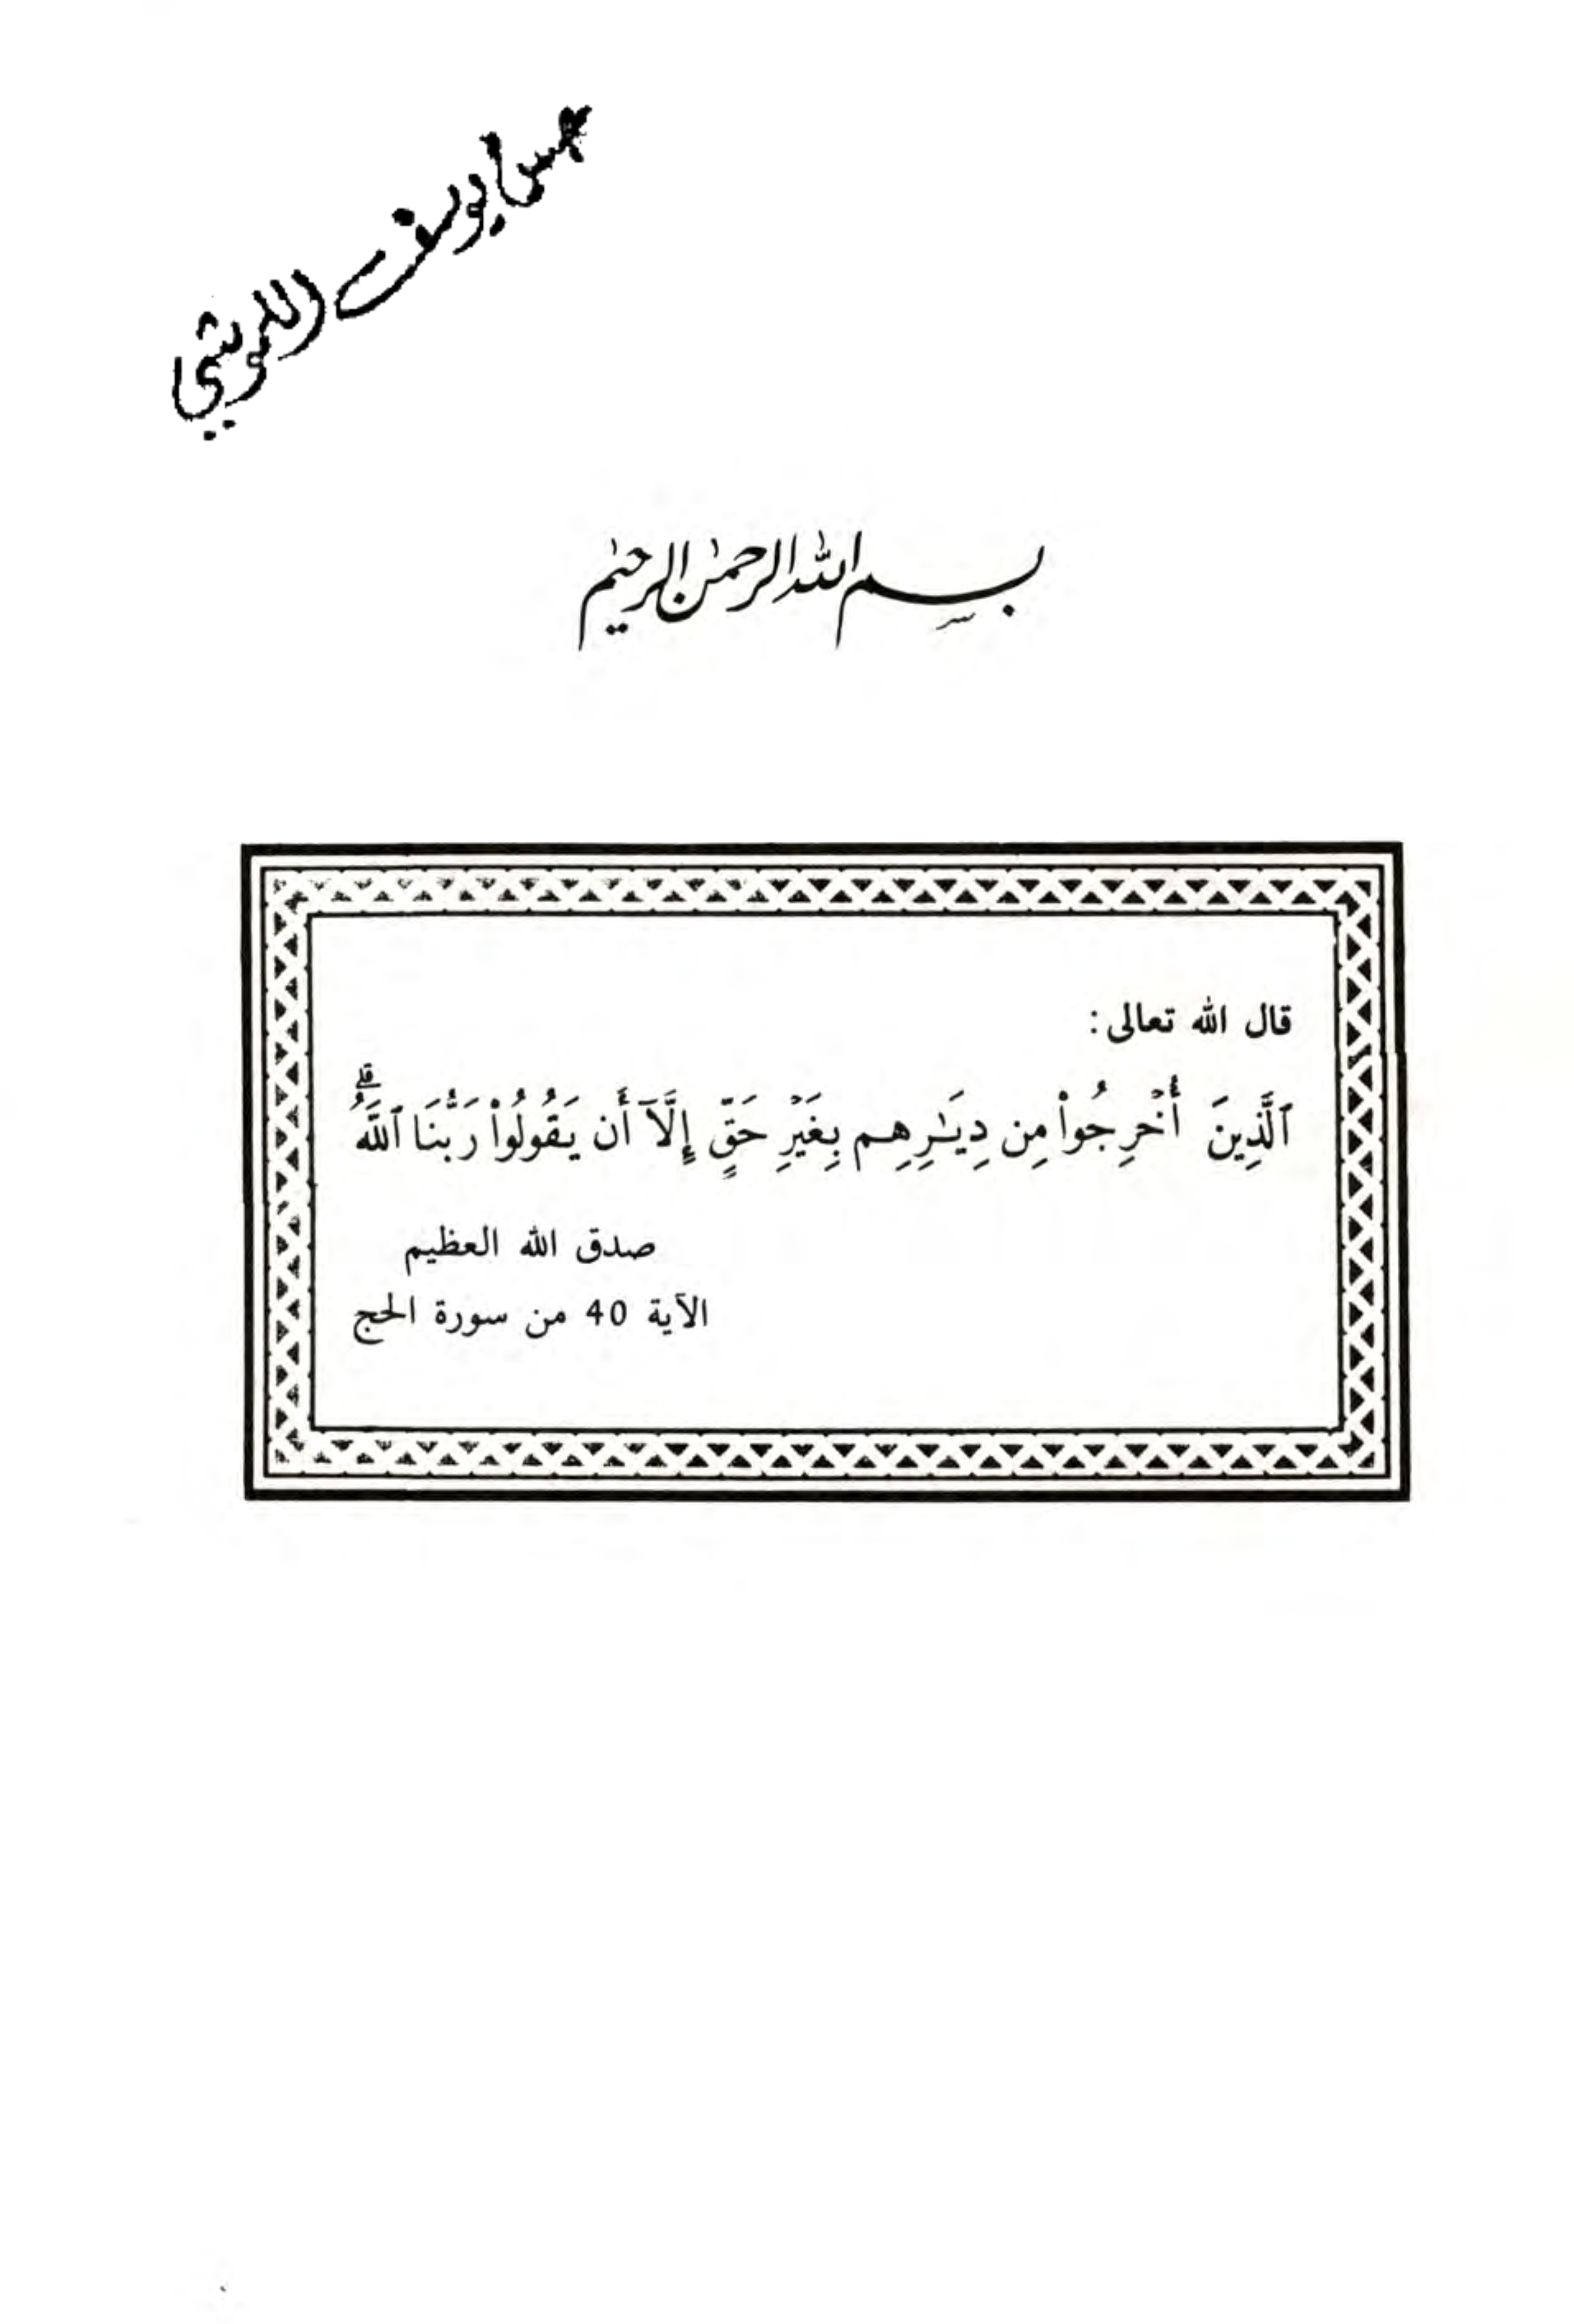 يوسف الكويتي
بسم الله الرحمٰن الرحيم
قال الله تعالى:
ٱلَّذِينَ أُخْرِجُوا۟ مِن دِيَـٰرِهِـم بِغَيْرِ حَقٍّ إِلَّآ أَن يَقُولُوا۟ رَبُّنَا ٱللَّهُ ۗ
صدق الله العظيم
الآية 40 من سورة الحج